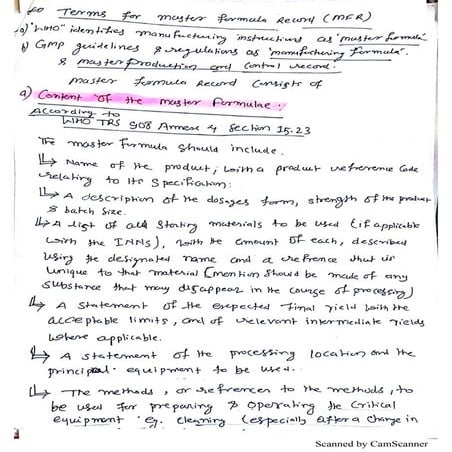 Terms for master formula Record (MFR)
a) "WHO" identifies manufacturing instructions as 'master formula'
b) GMP guidelines & regulations as 'manufacturing formula'
& master production and control record.
master formula Record consists of
a) Content of the master Formulae:
According to
WHO TRS 908 Annex 4 Section 15.23
The master formula should include.
↳ Name of the product, with a product reference Code
relating to its Specification:
↳ A description of the dosages form, strength of the product
& batch Size.
↳ A list of all Starting materials to be used (if applicable
with the INNs), with the amount of each, described
using the designated name and a refrence that is
unique to that material (mention should be made of any
Substance that may disappear in the course of processing)
↳ A Statement of the expected final yield with the
acceptable limits, and of relevant intermediate yields
where applicable.
↳ A statement of the processing location and the
principal equipment to be used.
↳ The methods, or refrences to the methods, to
be used for preparing & operating the Critical
equipment eg. cleaning (especially after a change in
Scanned by CamScanner